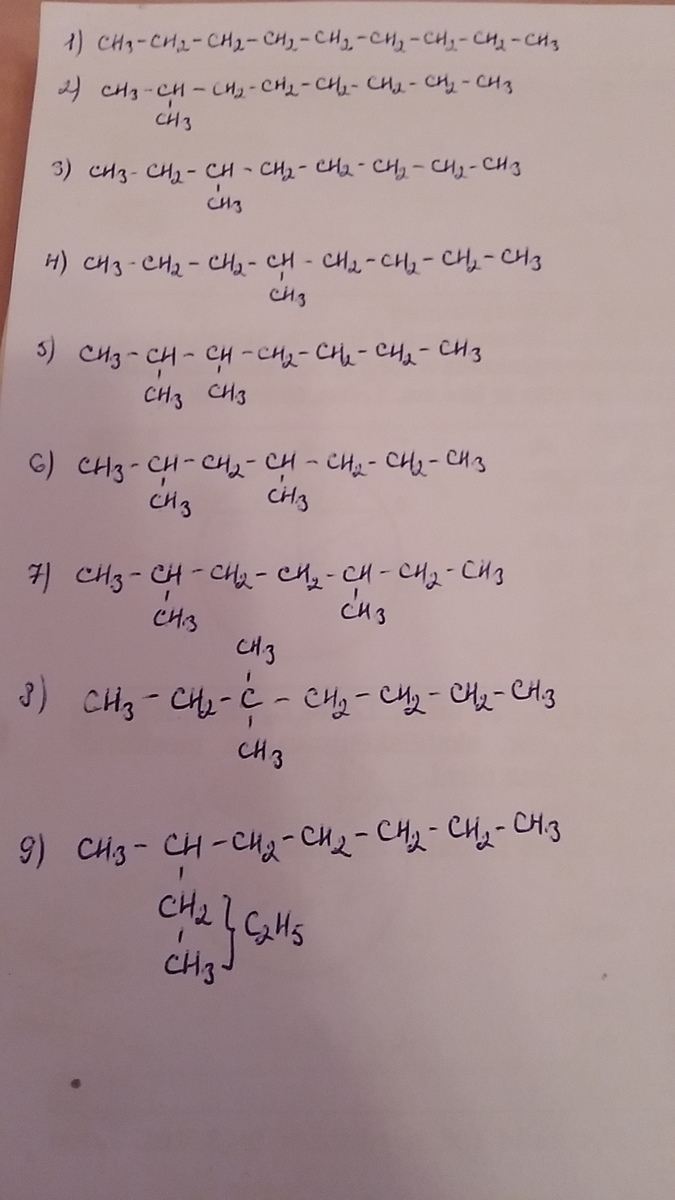 1) CH3-CH2-CH2-CH2-CH2-CH2-CH2-CH2-CH3
2) CH3-CH-CH2-CH2-CH2-CH2-CH2-CH3
CH3
3) CH3-CH2-CH-CH2-CH2-CH2-CH2-CH3
CH3
4) CH3-CH2-CH2-CH-CH2-CH2-CH2-CH3
CH3
5) CH3-CH-CH-CH2-CH2-CH2-CH3
CH3 CH3
6) CH3-CH-CH2-CH-CH2-CH2-CH3
CH3 CH3
7) CH3-CH-CH2-CH2-CH-CH2-CH3
CH3 CH3
CH3
8) CH3-CH2-C-CH2-CH2-CH2-CH3
CH3
9) CH3-CH-CH2-CH2-CH2-CH2-CH3
CH2 } C2H5
CH3